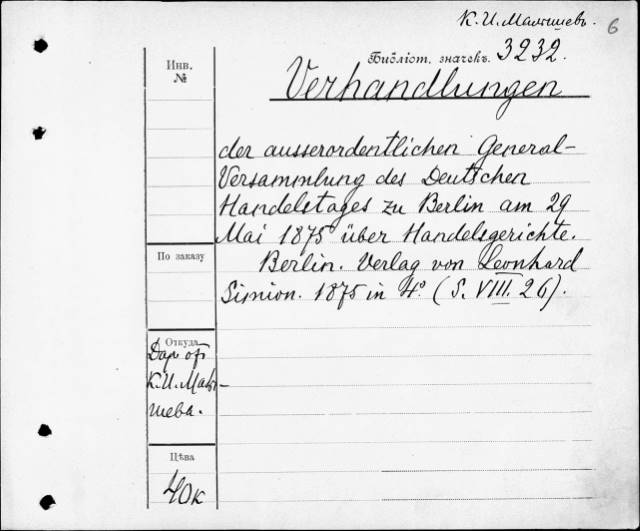 К. И. Малышевъ.
6
Библіот. значекъ. 3232.
Инв.
№
Verhandlungen
der ausserordentlichen General-
Versammlung des Deutschen
Handelstages zu Berlin am 29
Mai 1875 über Handelsgerichte.
По заказу
Berlin. Verlag von Leonhard
Simion. 1875 in 4º. (S. VIII. 26).
Откуда
Даръ отъ
К. И. Малы-
шева.
Цѣна
40 к